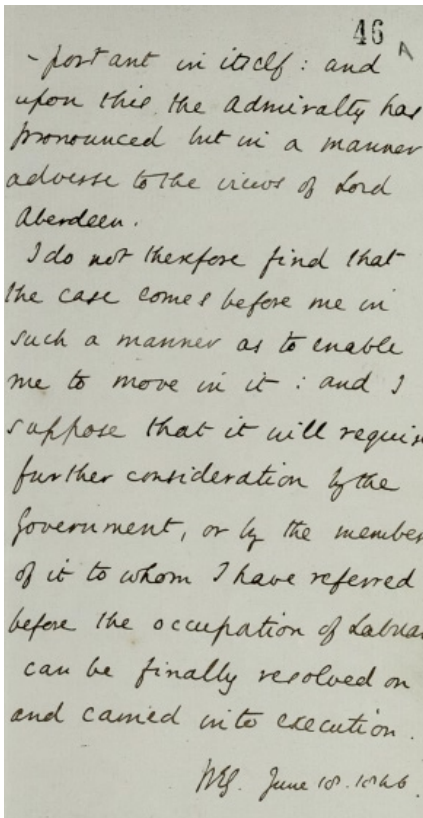 46 A
-portant in itself: and
upon this the Admiralty has
pronounced but in a manner
adverse to the views of Lord
Aberdeen.
I do not therefore find that
the case comes before me in
such a manner as to enable
me to move in it: and I
suppose that it will requir
further consideration by the
Government, or by the member
of it to whom I have referred
before the occupation of Labua
can be finally resolved on
and carried into execution.
WEG. June 18. 1846.